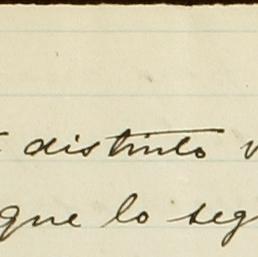 distinto
que lo seg